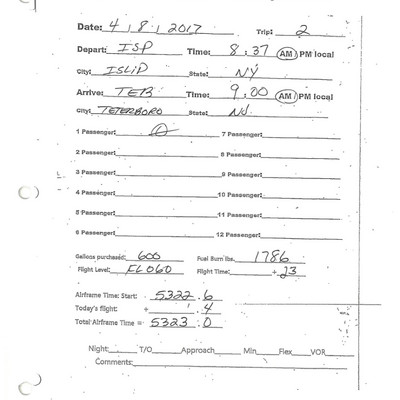 Date: 4 / 8 / 2017 Trip: 2
Depart: ISP Time: 8:37 AM / PM local
City: ISLIP State: NY
Arrive: TEB Time: 9:00 AM / PM local
City: TETERBORO State: NJ
1 Passenger: 0 7 Passenger:
2 Passenger: 8 Passenger:
3 Passenger: 9 Passenger:
4 Passenger: 10 Passenger:
5 Passenger: 11 Passenger:
6 Passenger: 12 Passenger:
Gallons purchased: 600 Fuel Burn lbs. 1786
Flight Level: FL060 Flight Time: + 23
Airframe Time: Start: 5322.6
Today's flight: + .4
Total Airframe Time = 5323.0
Night: T/O Approach Min Flex VOR
Comments: